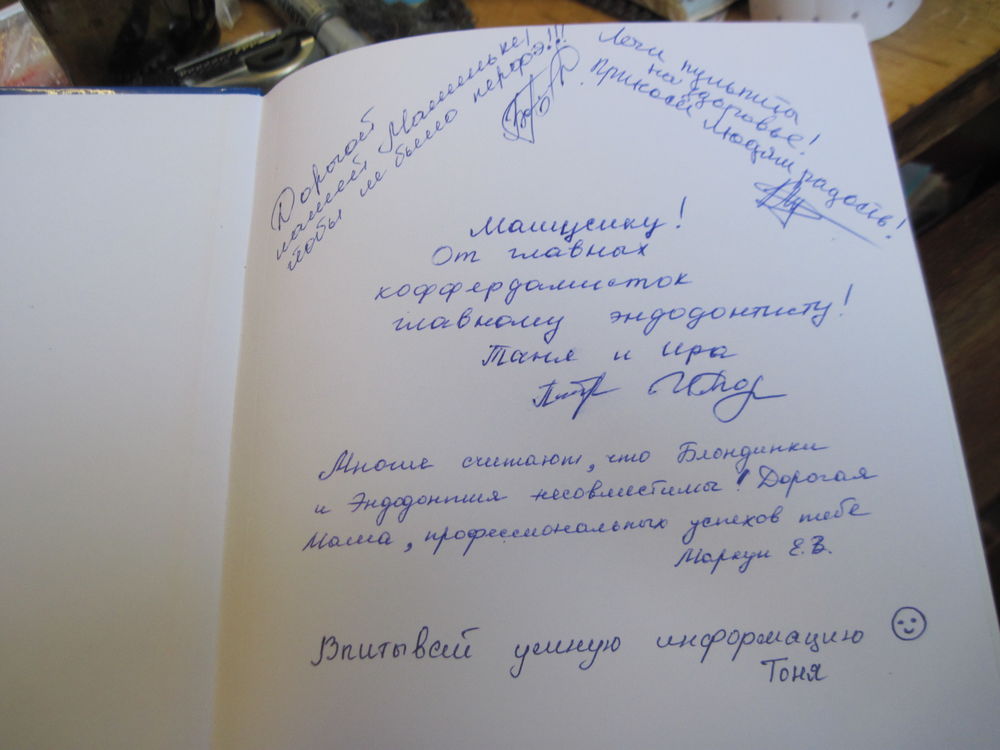 Дорогой
нашей Машиньке!
чтобы не было перфэ!!!
Лечи пульпиты
на здоровье!
Приноси людям радость!
Машусику!
От главных
коффердамисток
главному эндодонтисту!
Таня и Ира
Многие считают, что Блондинки
и Эндодонтия несовместимы! Дорогая
Маша, профессиональных успехов тебе
Маркун Е.В.
Впитывай умную информацию
Тоня